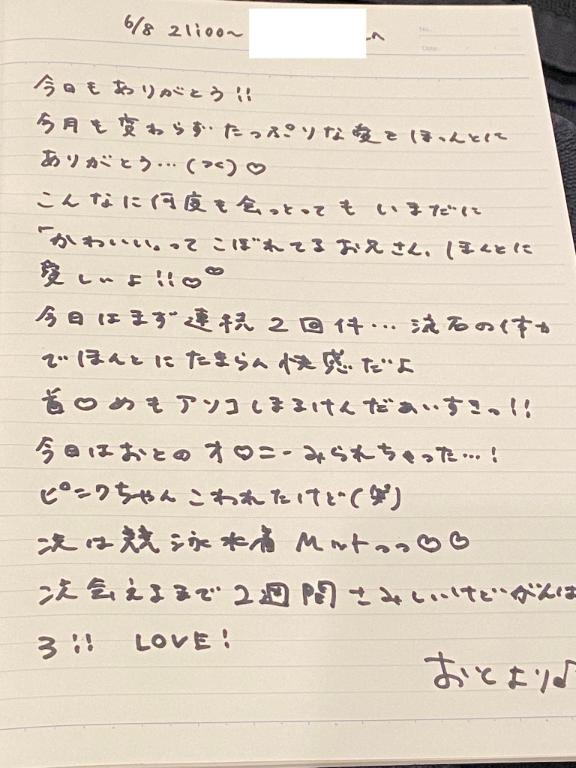 6/8 21:00〜 ん
No.
Date
今日もありがとう!!
今月も変わらずたっぷりな愛をほんとに
ありがとう…(><)♡
こんなに何度も会っとってもいまだに
「かわいい。ってこぼれてるお兄さん、ほんとに
愛しいよ!!♡♡
今日はまず連続2回件…流石の体力
でほんとにたまらん快感だよ
首♡めもアソコしまるけんだぁいすきっ!!
今日はおとのオ♡ニーみられちゃった…!
ピンクちゃんこわれたけど()
次は競泳水着Mットっっ♡♡
次会えるまで2週間さみしいけどがんば
ろ!! LOVE!
おとより♪